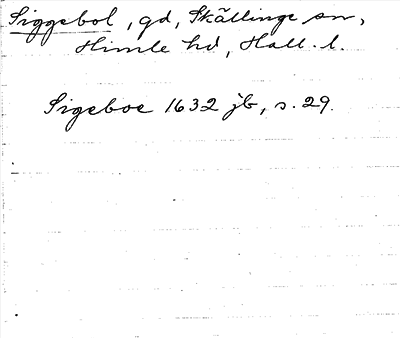 Siggebol, gd, Skällinge sn,
Himle hd, Hall. l.
Sigeboe 1632 jb, s. 29.